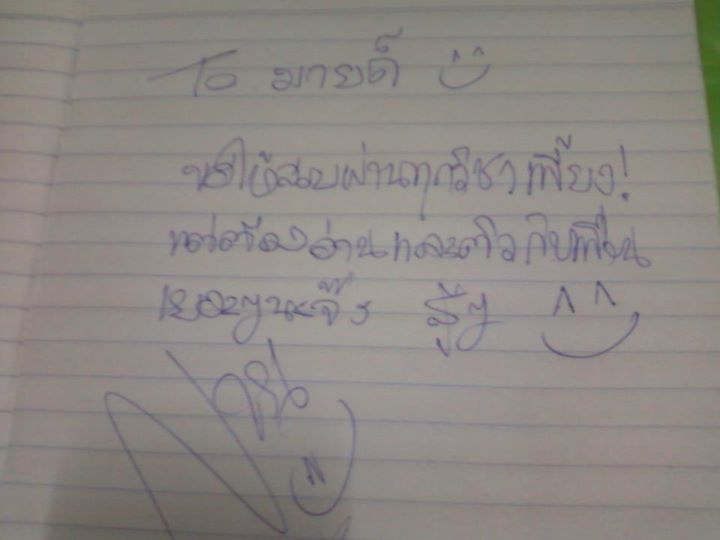 To มายด์
ขอให้สอบผ่านทุกวิชา เพี้ยง!
แต่ต้องอ่านและติวกับเพื่อน
เยอะๆนะจ๊ะ สู้ๆ